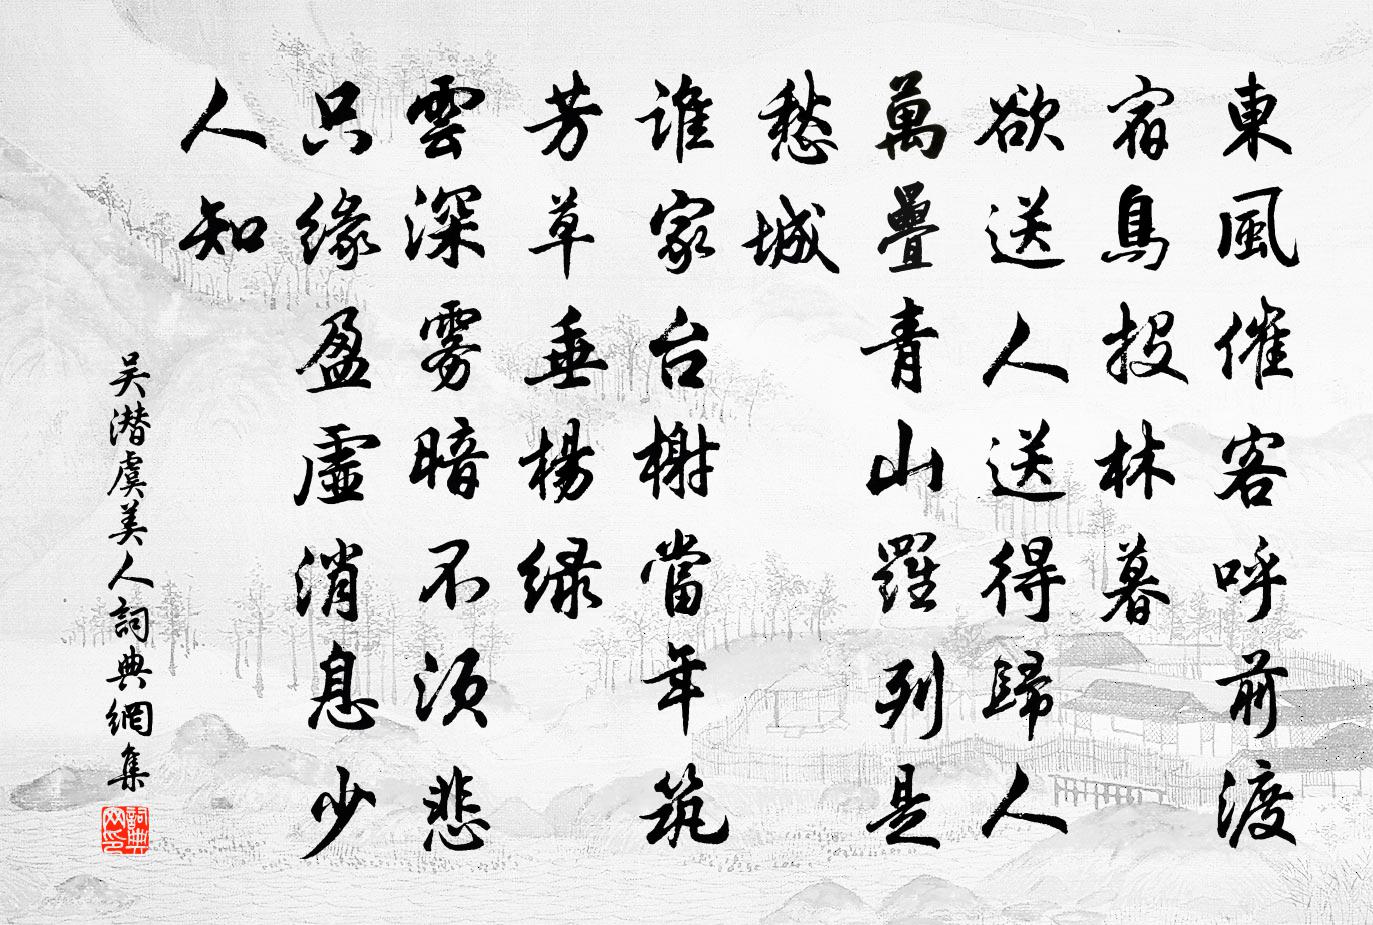 東風催客呼前渡
宿鳥投林暮
欲送人送得歸人
萬疊青山羅列是
愁城
誰家台榭當年筑
芳草垂楊綠
雲深雾暗不須悲
只緣盈虛消息少
人知
吴潜虞美人詞典網集
詞典网印